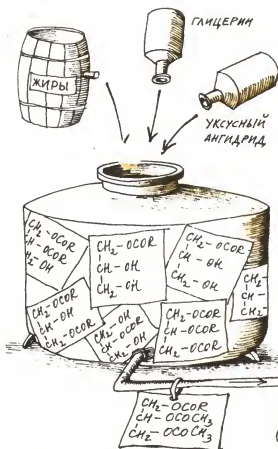 ГЛИЦЕРИН
ЖИРЫ
УКСУСНЫЙ
АНГИДРИД
CH₂-OCOR
CH-OCOR
CH₂-OH
CH₂-OCOR
CH-OH
CH₂-OH
CH₂-OCOR
CH-OH
CH₂-OH
CH₂-
CH-
CH₂-
CH₂-OCOR
CH-OH
CH₂-OCOR
CH₂-OH
CH-OCOR
CH₂-OH
CH₂-OCOR
CH-OCOR
CH₂-OCOR
CH₂-OCOR
CH-OCOCH₃
CH₂-OCOCH₃